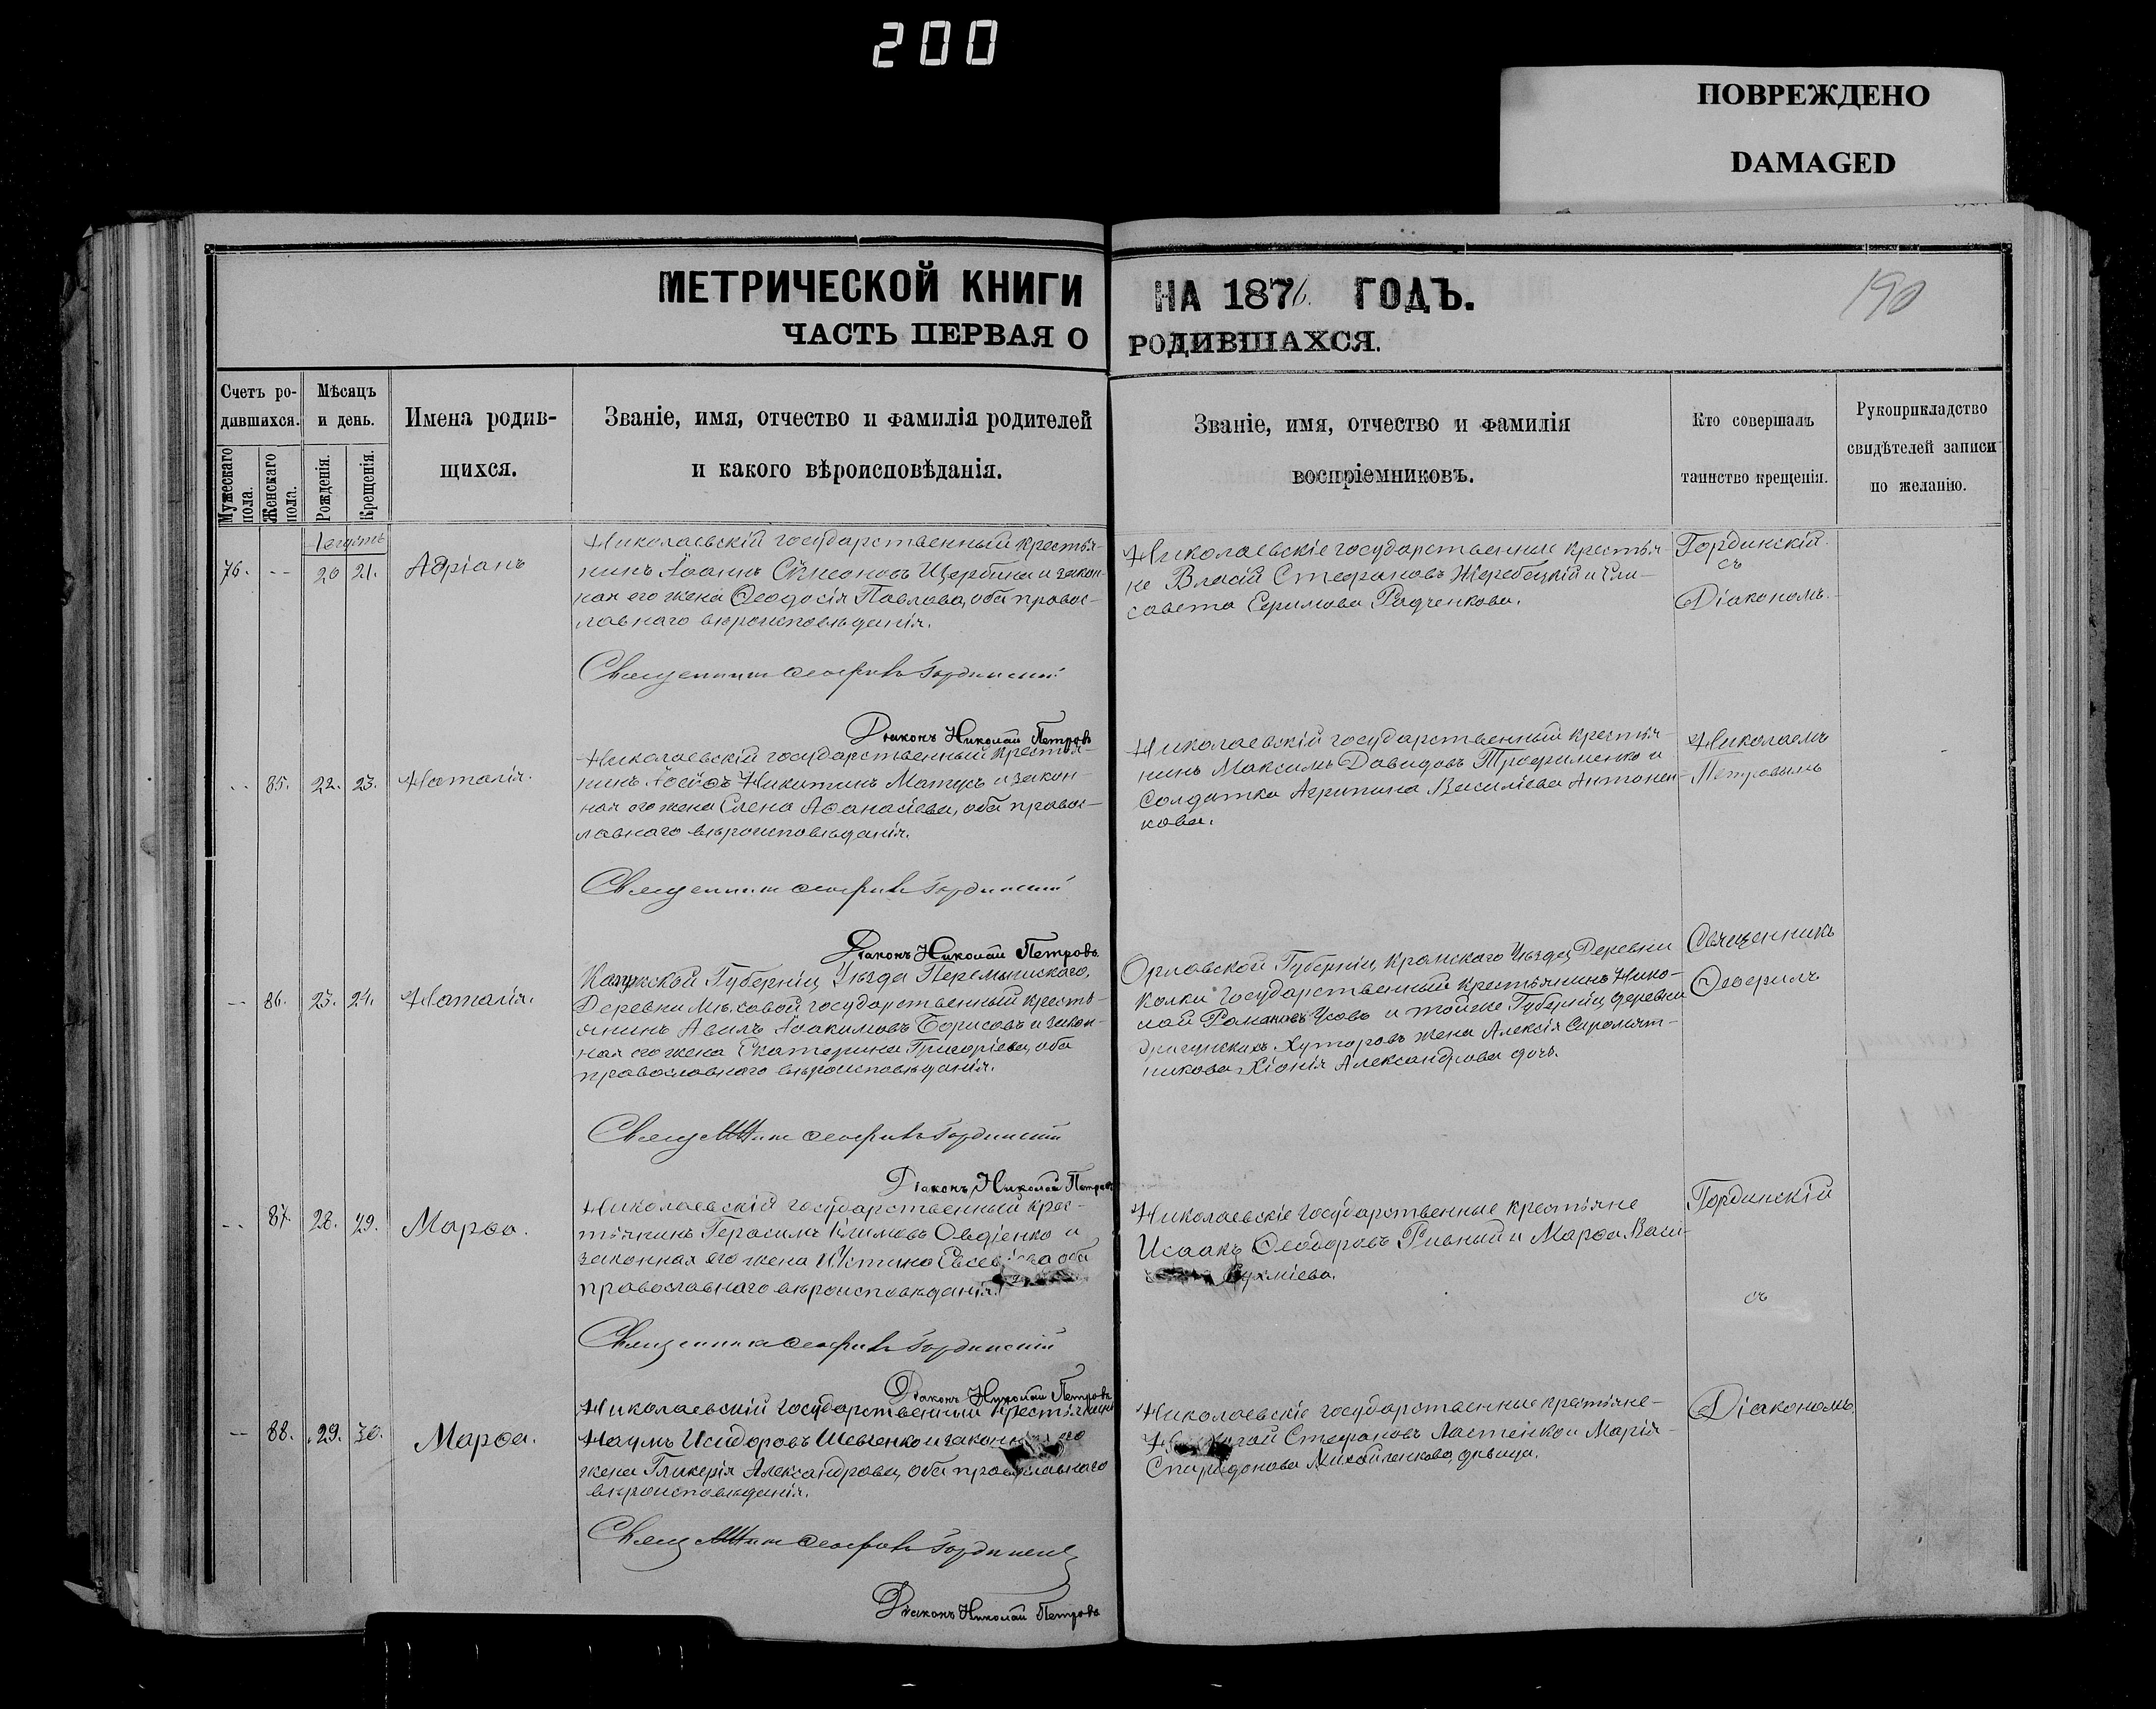 200
ПОВРЕЖДЕНО
DAMAGED
МЕТРИЧЕСКОЙ КНИГИ НА 1876. ГОДЪ.
ЧАСТЬ ПЕРВАЯ О РОДИВШАХСЯ.
190
Счетъ ро-
дившихся.
Мужескаго пола.
Женскаго пола.
Мѣсяцъ
и день.
Рожденія.
Крещенія.
Имена родив-
щихся.
Званіе, имя, отчество и фамилія родителей
и какого вѣроисповѣданія.
Званіе, имя, отчество и фамилія
воспріемниковъ.
Кто совершалъ
таинство крещенія.
Рукоприкладство
свидѣтелей записи
по желанію.
Августъ
76. -- 20 21. Адріанъ
Николаевскій государственный крестья-
нинъ Іоаннъ Сѵмеоновъ Щербина и закон-
ная его жена Ѳеодосія Павлова, оба правос-
лавнаго вѣроисповѣданія.
Священникъ Ѳеофилъ Гординскій
Діаконъ Николай Петровъ
Николаевскіе государственные крестья-
не Власій Стефановъ Жеребецкій и Ели-
савета Ефимова Радченкова.
Гординскій
съ
Діакономъ.
-- 85. 22. 23. Наталія.
Николаевскій государственный крестья-
нинъ Іосифъ Никитинъ Матус и закон-
ная его жена Елена Аѳанасіева, оба правос-
лавнаго вѣроисповѣданія.
Священникъ Ѳеофилъ Гординскій
Діаконъ Николай Петровъ.
Николаевскій государственный крестья-
нинъ Максимъ Давидовъ Трофименко и
Солдатка Агрипина Василіева Антонен-
кова.
Николаемъ
Петровымъ
-- 86. 23. 24. Наталія.
Калужской Губерніи, Уѣзда Перемышскаго,
Деревни Мѣховой государственный кресть-
янинъ Авилъ Іоакимовъ Борисовъ и закон-
ная его жена Екатерина Григоріева, оба
православнаго вѣроисповѣданія.
Священникъ Ѳеофилъ Гординскій
Діаконъ Николай Петровъ
Орловской Губерніи, Кромскаго Уѣзда, Деревни
Колки государственный крестьянинъ Нико-
лай Романовъ Усовъ и тойже Губерніи, деревни
Хуторовъ жена Алексія Сыромят-
никова Хіонія Александрова дочь.
Священникъ
Ѳеофилъ
-- 87. 28. 29. Марѳа.
Николаевскій государственный крес-
тьянинъ Герасимъ Климовъ Овдіенко и
законная его жена Иустина Евсевіева оба
православнаго вѣроисповѣданія.
Священникъ Ѳеофилъ Гординскій
Діаконъ Николай Петровъ
Николаевскіе государственные крестьяне
Исаакъ Ѳеодоровъ Ривный и Марѳа Васи-
Гординскій
съ
-- 88. 29. 30. Марѳа.
Николаевскій государственный крестьянинъ
Наумъ Исидоровъ Шевченко и законная его
жена Гликерія Александрова, оба православнаго
вѣроисповѣданія.
Священникъ Ѳеофилъ Гординскій
Діаконъ Николай Петровъ
Николаевскіе государственные крестьяне
Стефановъ Ластенко и Марія
Спиридонова Михайленкова, дѣвица.
Діакономъ.